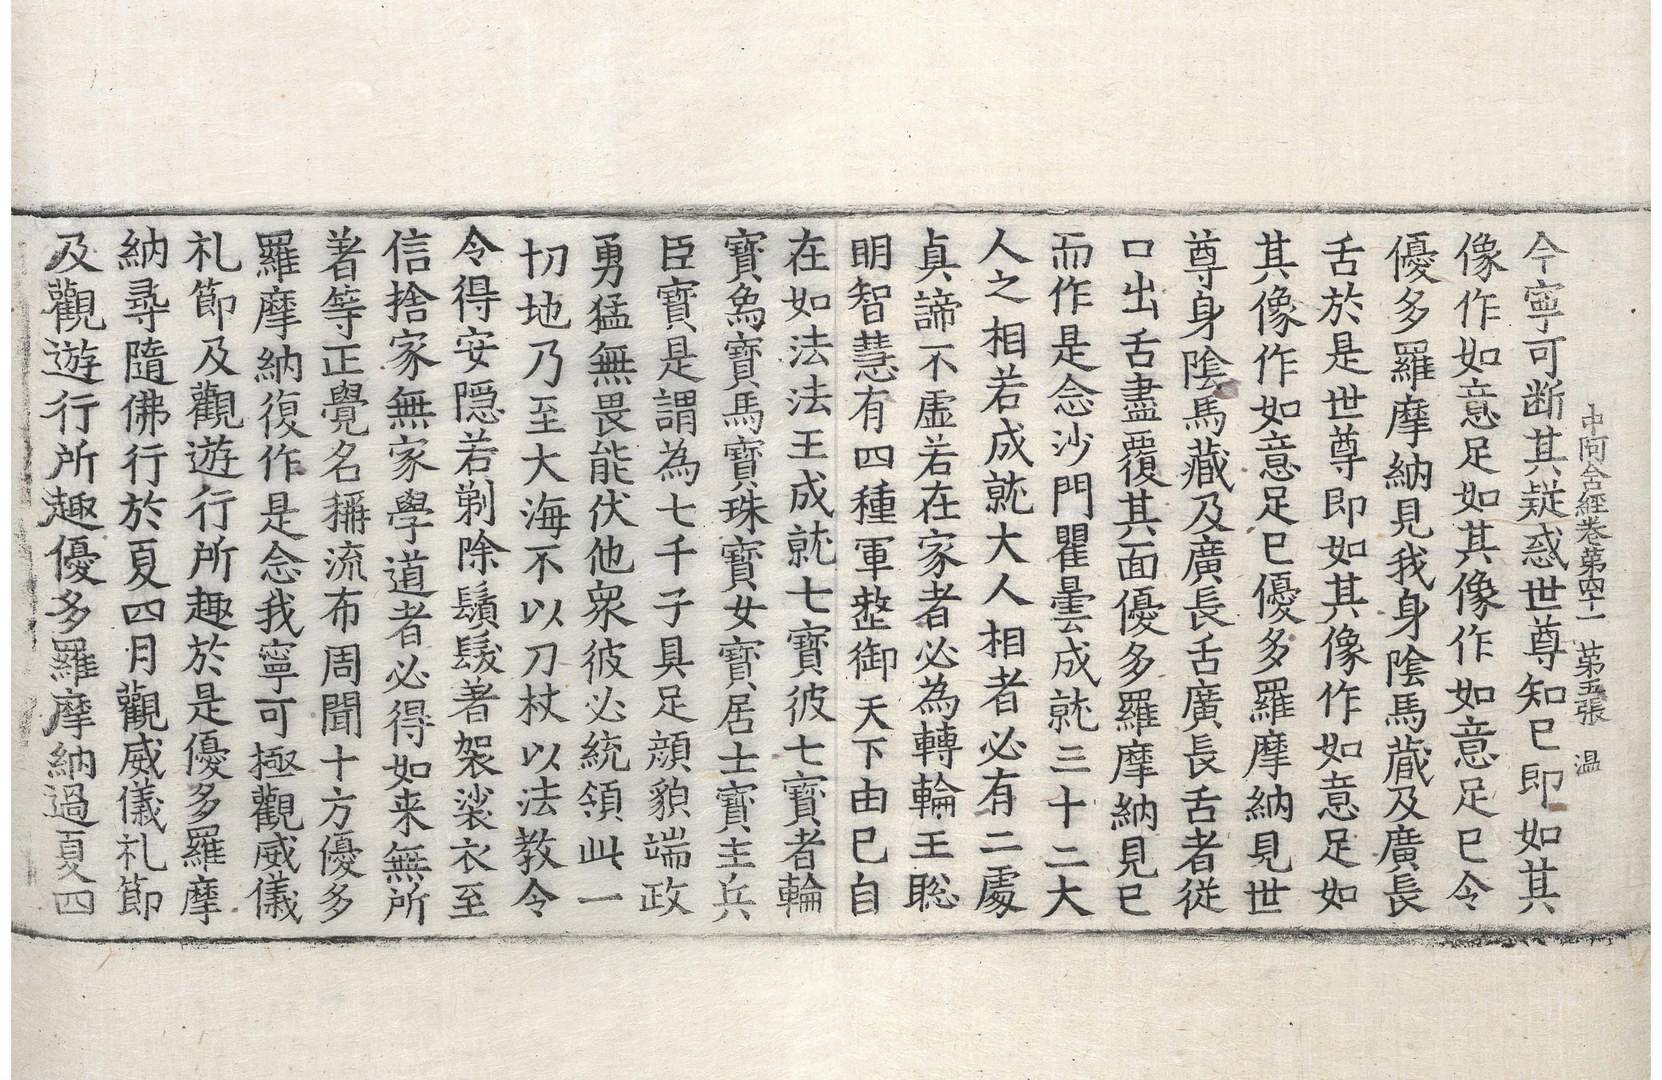 中阿含經卷第四十一 第五張 温
今寧可断其疑惑世尊知已即如其
像作如意足如其像作如意足已令
優多羅摩納見我身陰馬藏及廣長
舌於是世尊即如其像作如意足如
其像作如意足已優多羅摩納見世
尊身陰馬藏及廣長舌廣長舌者從
口出舌盡覆其面優多羅摩納見已
而作是念沙門瞿曇成就三十二大
人之相若成就大人相者必有二處
真諦不虛若在家者必為轉輪王聡
明智慧有四種軍整御天下由已自
在如法法王成就七寶彼七寶者輪
寶象寶馬寶珠寶女寶居士寶主兵
臣寶是謂為七千子具足顔貌端政
勇猛無畏能伏他衆彼必統領此一
切地乃至大海不以刀杖以法教令
令得安隠若剃除鬚髮著袈裟衣至
信捨家無家學道者必得如来無所
著等正覺名稱流布周聞十方優多
羅摩納復作是念我寧可極觀威儀
礼節及觀遊行所趣於是優多羅摩
納尋隨佛行於夏四月觀威儀礼節
及觀遊行所趣優多羅摩納過夏四